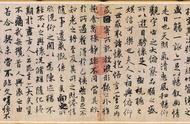 盛一觴一詠亦足以暢敘幽情
是日也天朗氣清惠風和暢仰
觀宇宙之大俯察品類之盛
所以遊目騁懷足以極視聽之
娛信可樂也夫人之相與俯仰
一世或取諸懷抱悟言一室之內
或因寄所託放浪形骸之外雖
趣舍萬殊靜躁不同當其欣
於所遇蹔得於己怏然自足不
知老之將至及其所之既惓情
隨事遷感慨係之矣向之所
欣俛仰之閒以為陳迹猶不
能不以之興懷況脩短隨化終
期於盡古人云死生亦大矣豈
不痛哉每攬昔人興感之由
若合一契未嘗不臨文嗟悼不